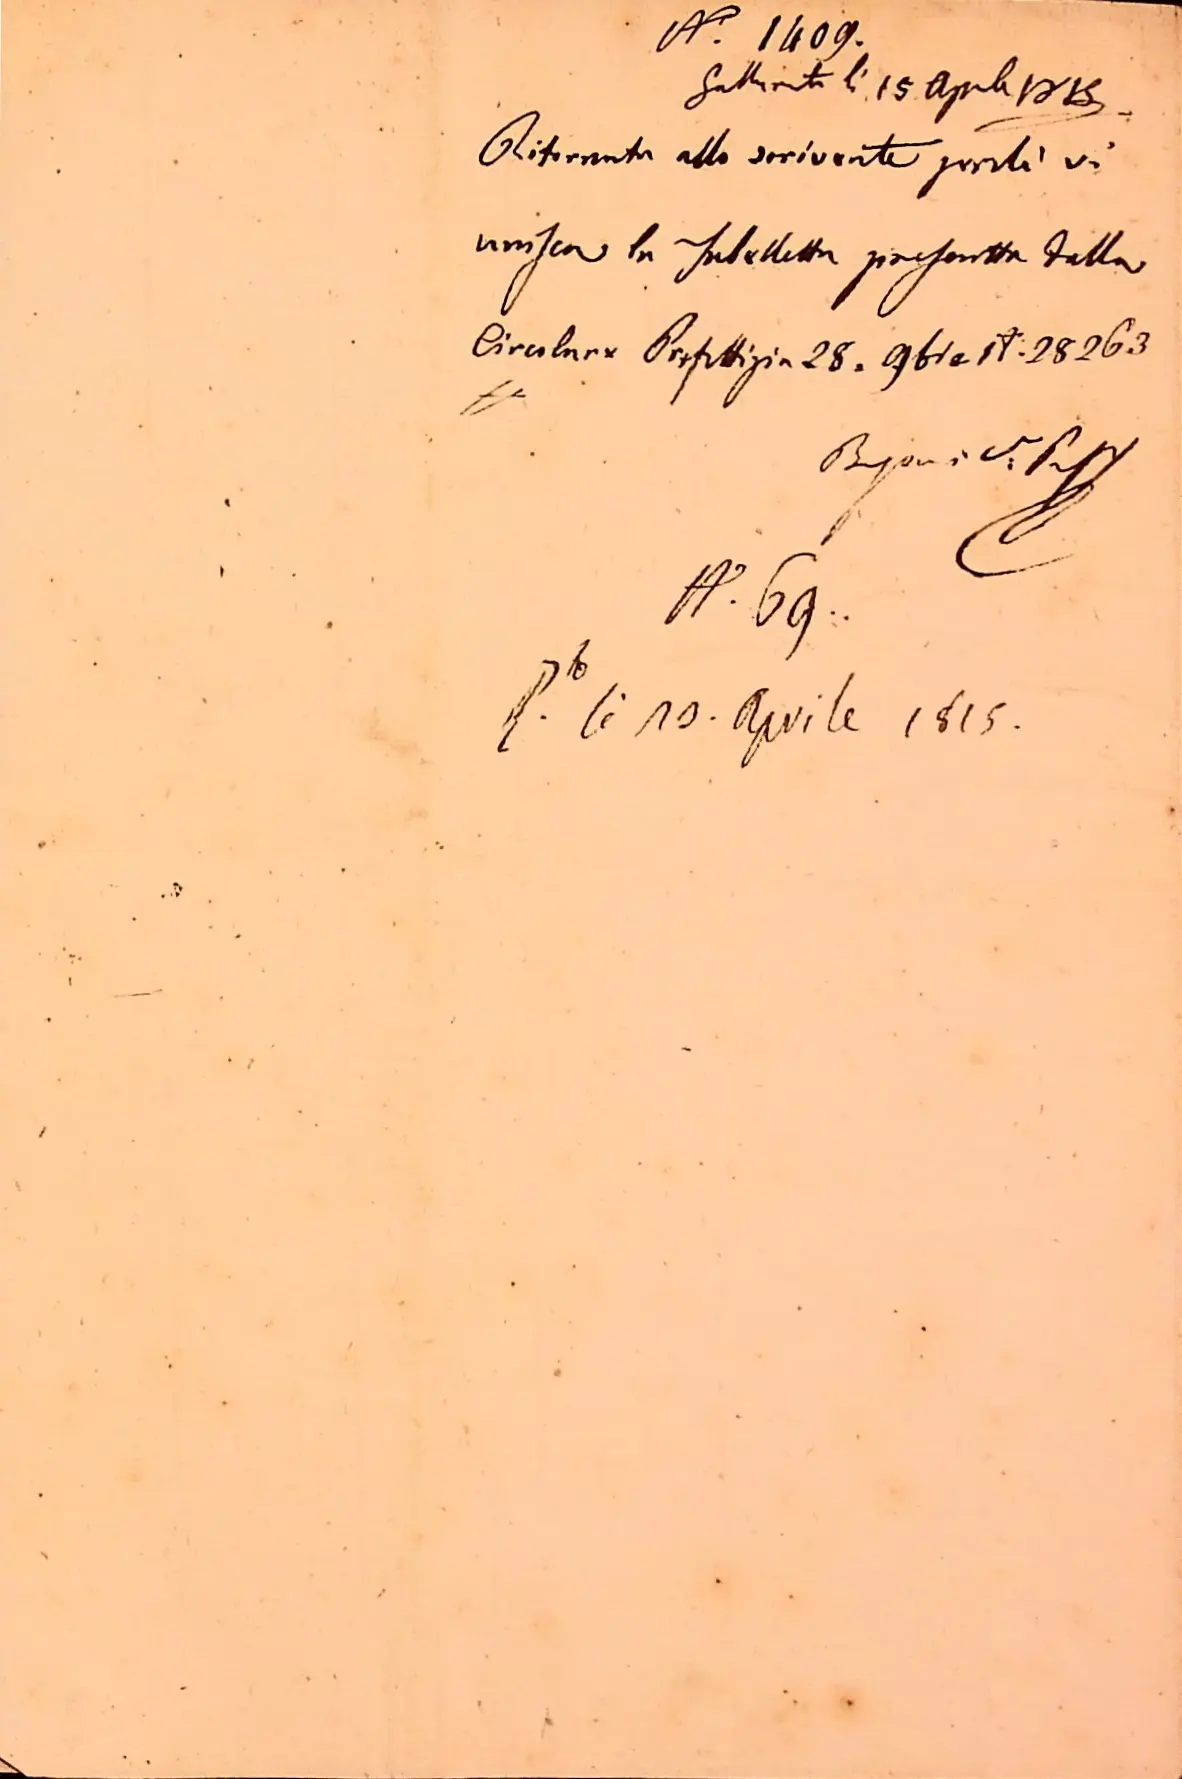 N.° 1409.
Gallarate li 15 Aprile 1815
Ritornata allo scrivente perchè vi
unisca la Tabelletta prescritta dalla
Circolare Prefettizia 28. 9bre N.° 28263
N.° 69.
R.ta li 19. Aprile 1815.